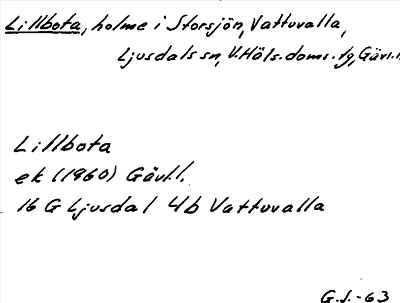 Lillbota, holme i Storsjön, Vattuvalla,
Ljusdals sn, V. Häls. doms. tg, Gävl.l.
Lillbota
ek (1960) Gävl.l.
16 G Ljusdal 4b Vattuvalla
G.J.-63